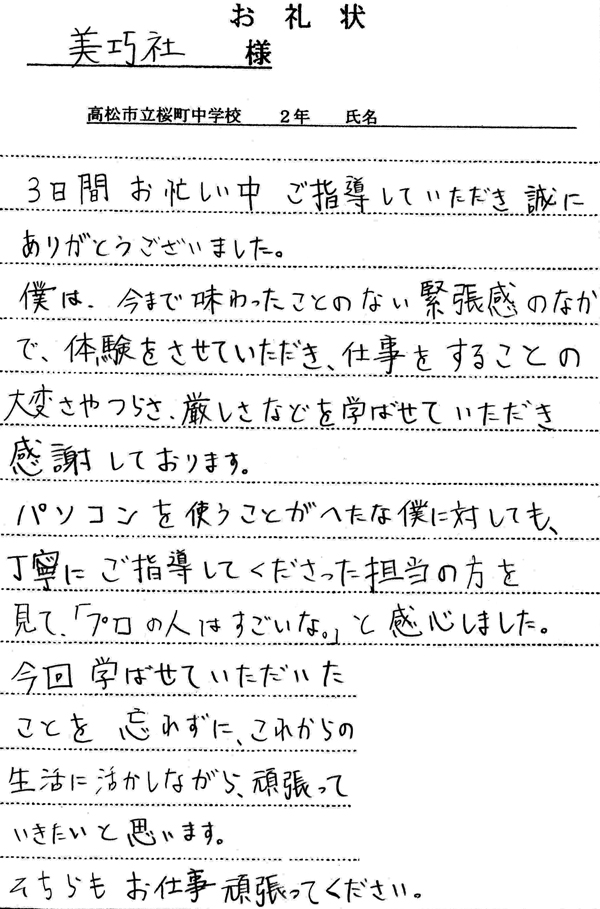 お礼状
美巧社 様
高松市立桜町中学校 2年 氏名
3日間 お忙しい中 ご指導していただき 誠に
ありがとうございました。
僕は、今まで味わったことのない緊張感のなか
で、体験をさせていただき、仕事をすることの
大変さやつらさ、厳しさなどを学ばせていただき
感謝しております。
パソコンを使うことがへたな僕に対しても、
丁寧にご指導してくださった担当の方を
見て、「プロの人はすごいな。」と感心しました。
今回学ばせていただいた
ことを 忘れずに、これからの
生活に活かしながら、頑張って
いきたいと思います。
そちらもお仕事頑張ってください。